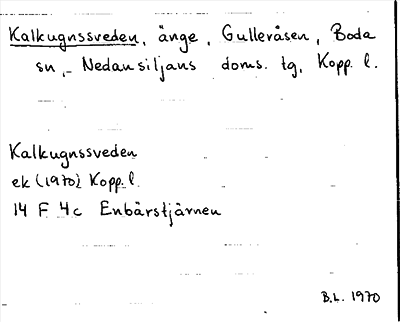 Kalkugnssveden, änge, Gulleråsen, Boda
sn, Nedansiljans doms. tg, Kopp. l.
Kalkugnssveden
ek (1970) Kopp. l.
14 F 4c Enbärstjärnen
B.L. 1970